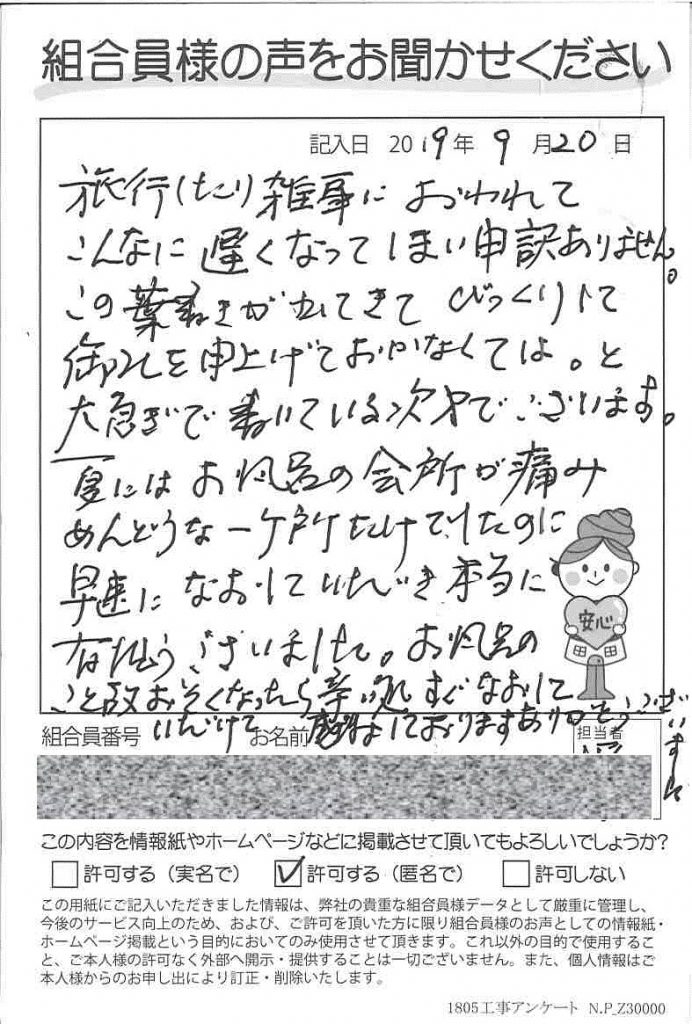 組合員様の声をお聞かせください
記入日 2019年 9月20日
旅行したり雑事におわれて
こんなに遅くなってしまい申訳ありません。
この葉書きが出てきてびっくりして
御礼を申上げておかなくては。と
大急ぎで書いている次才でございます。
夏にはお風呂の会所が痛み
めんどうな一ヶ所だけでしたのに
早速になおしていただき本当に
有難うございました。お風呂の
こと故おそくなったら辛い処すぐなおして
いただけて しておりますありがとうございました
安心
組合員番号 お名前 担当者
この内容を情報紙やホームページなどに掲載させて頂いてもよろしいでしょうか?
許可する（実名で） 許可する（匿名で） 許可しない
この用紙にご記入いただきました情報は、弊社の貴重な組合員様データとして厳重に管理し、
今後のサービス向上のため、および、ご許可を頂いた方に限り組合員様のお声としての情報紙・
ホームページ掲載という目的においてのみ使用させて頂きます。これ以外の目的で使用するこ
と、ご本人様の許可なく外部へ開示・提供することは一切ございません。また、個人情報はご
本人様からのお申し出により訂正・削除いたします。
1805工事アンケート N.P_Z30000